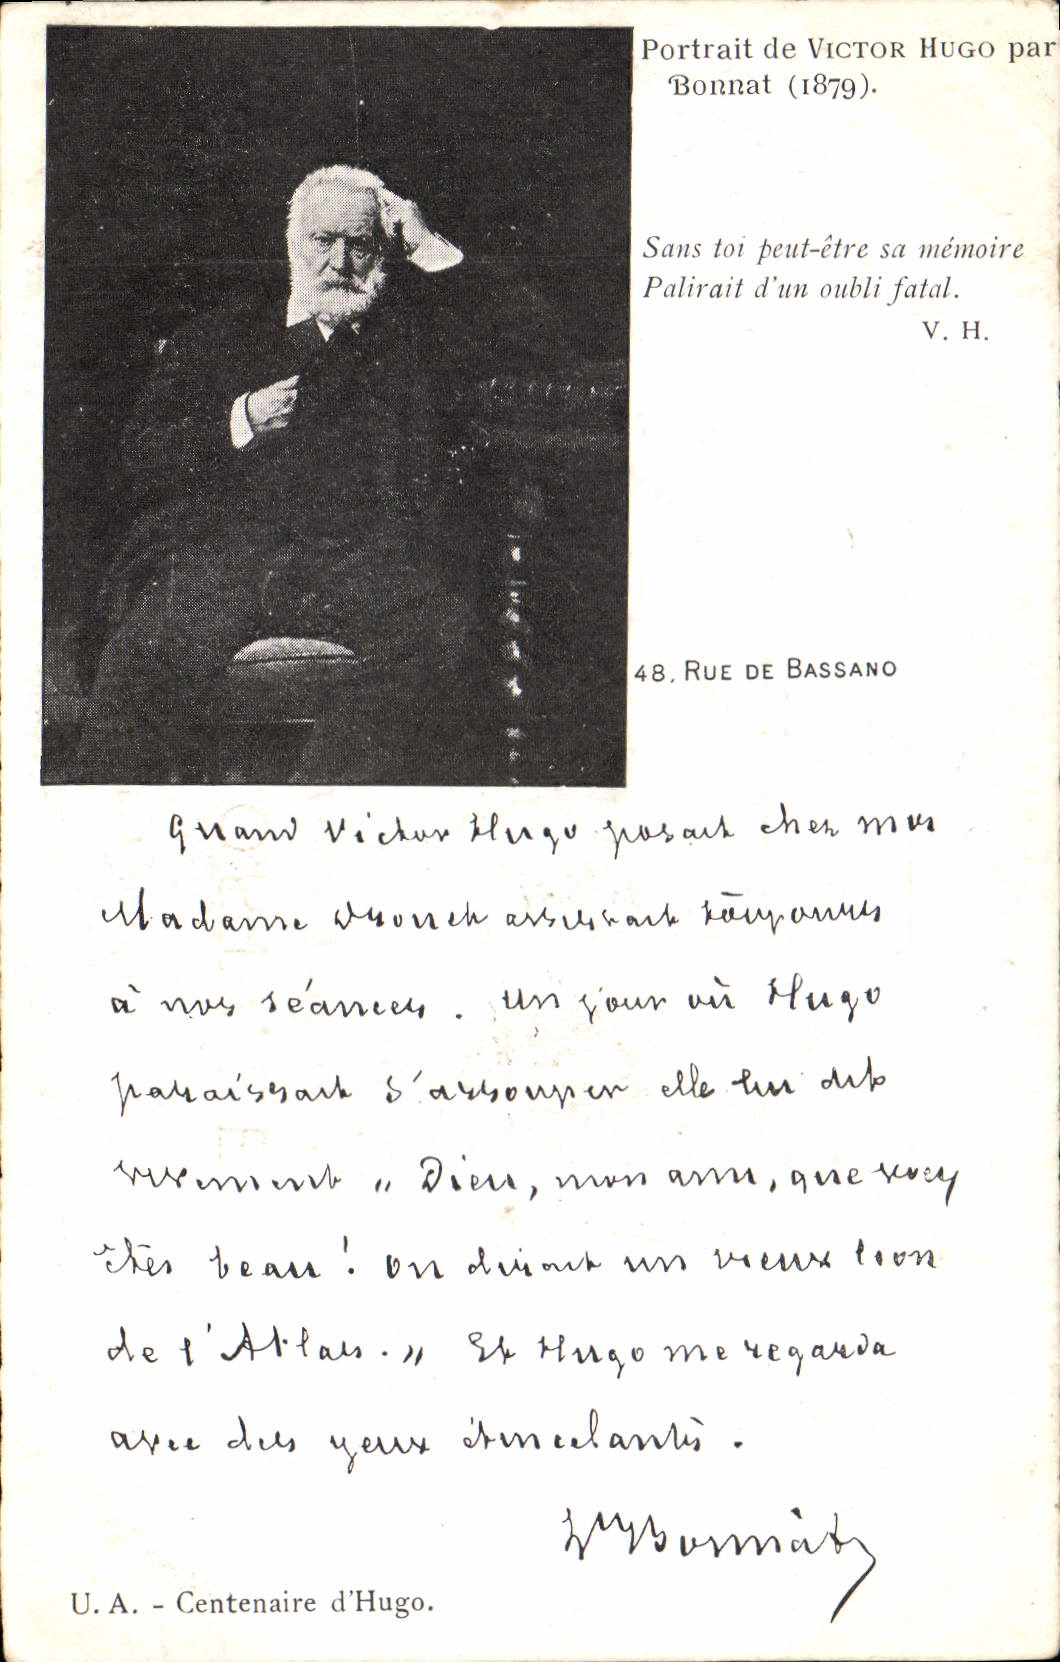 Portrait de VICTOR HUGO par
Bonnat (1879).
Sans toi peut-être sa mémoire
Palirait d'un oubli fatal.
V. H.
48, RUE DE BASSANO
Quand Victor Hugo posait chez moi
Madame Drouet assistait toujours
à nos séances. Un jour où Hugo
paraissait s'assoupir elle lui dit
vivement „ Dieu, mon ami, que vous
êtes beau ! on dirait un vieux lion
de l'Atlas. „ Et Hugo me regarda
avec des yeux étincelants.
Ln Bonnat
U. A. - Centenaire d'Hugo.